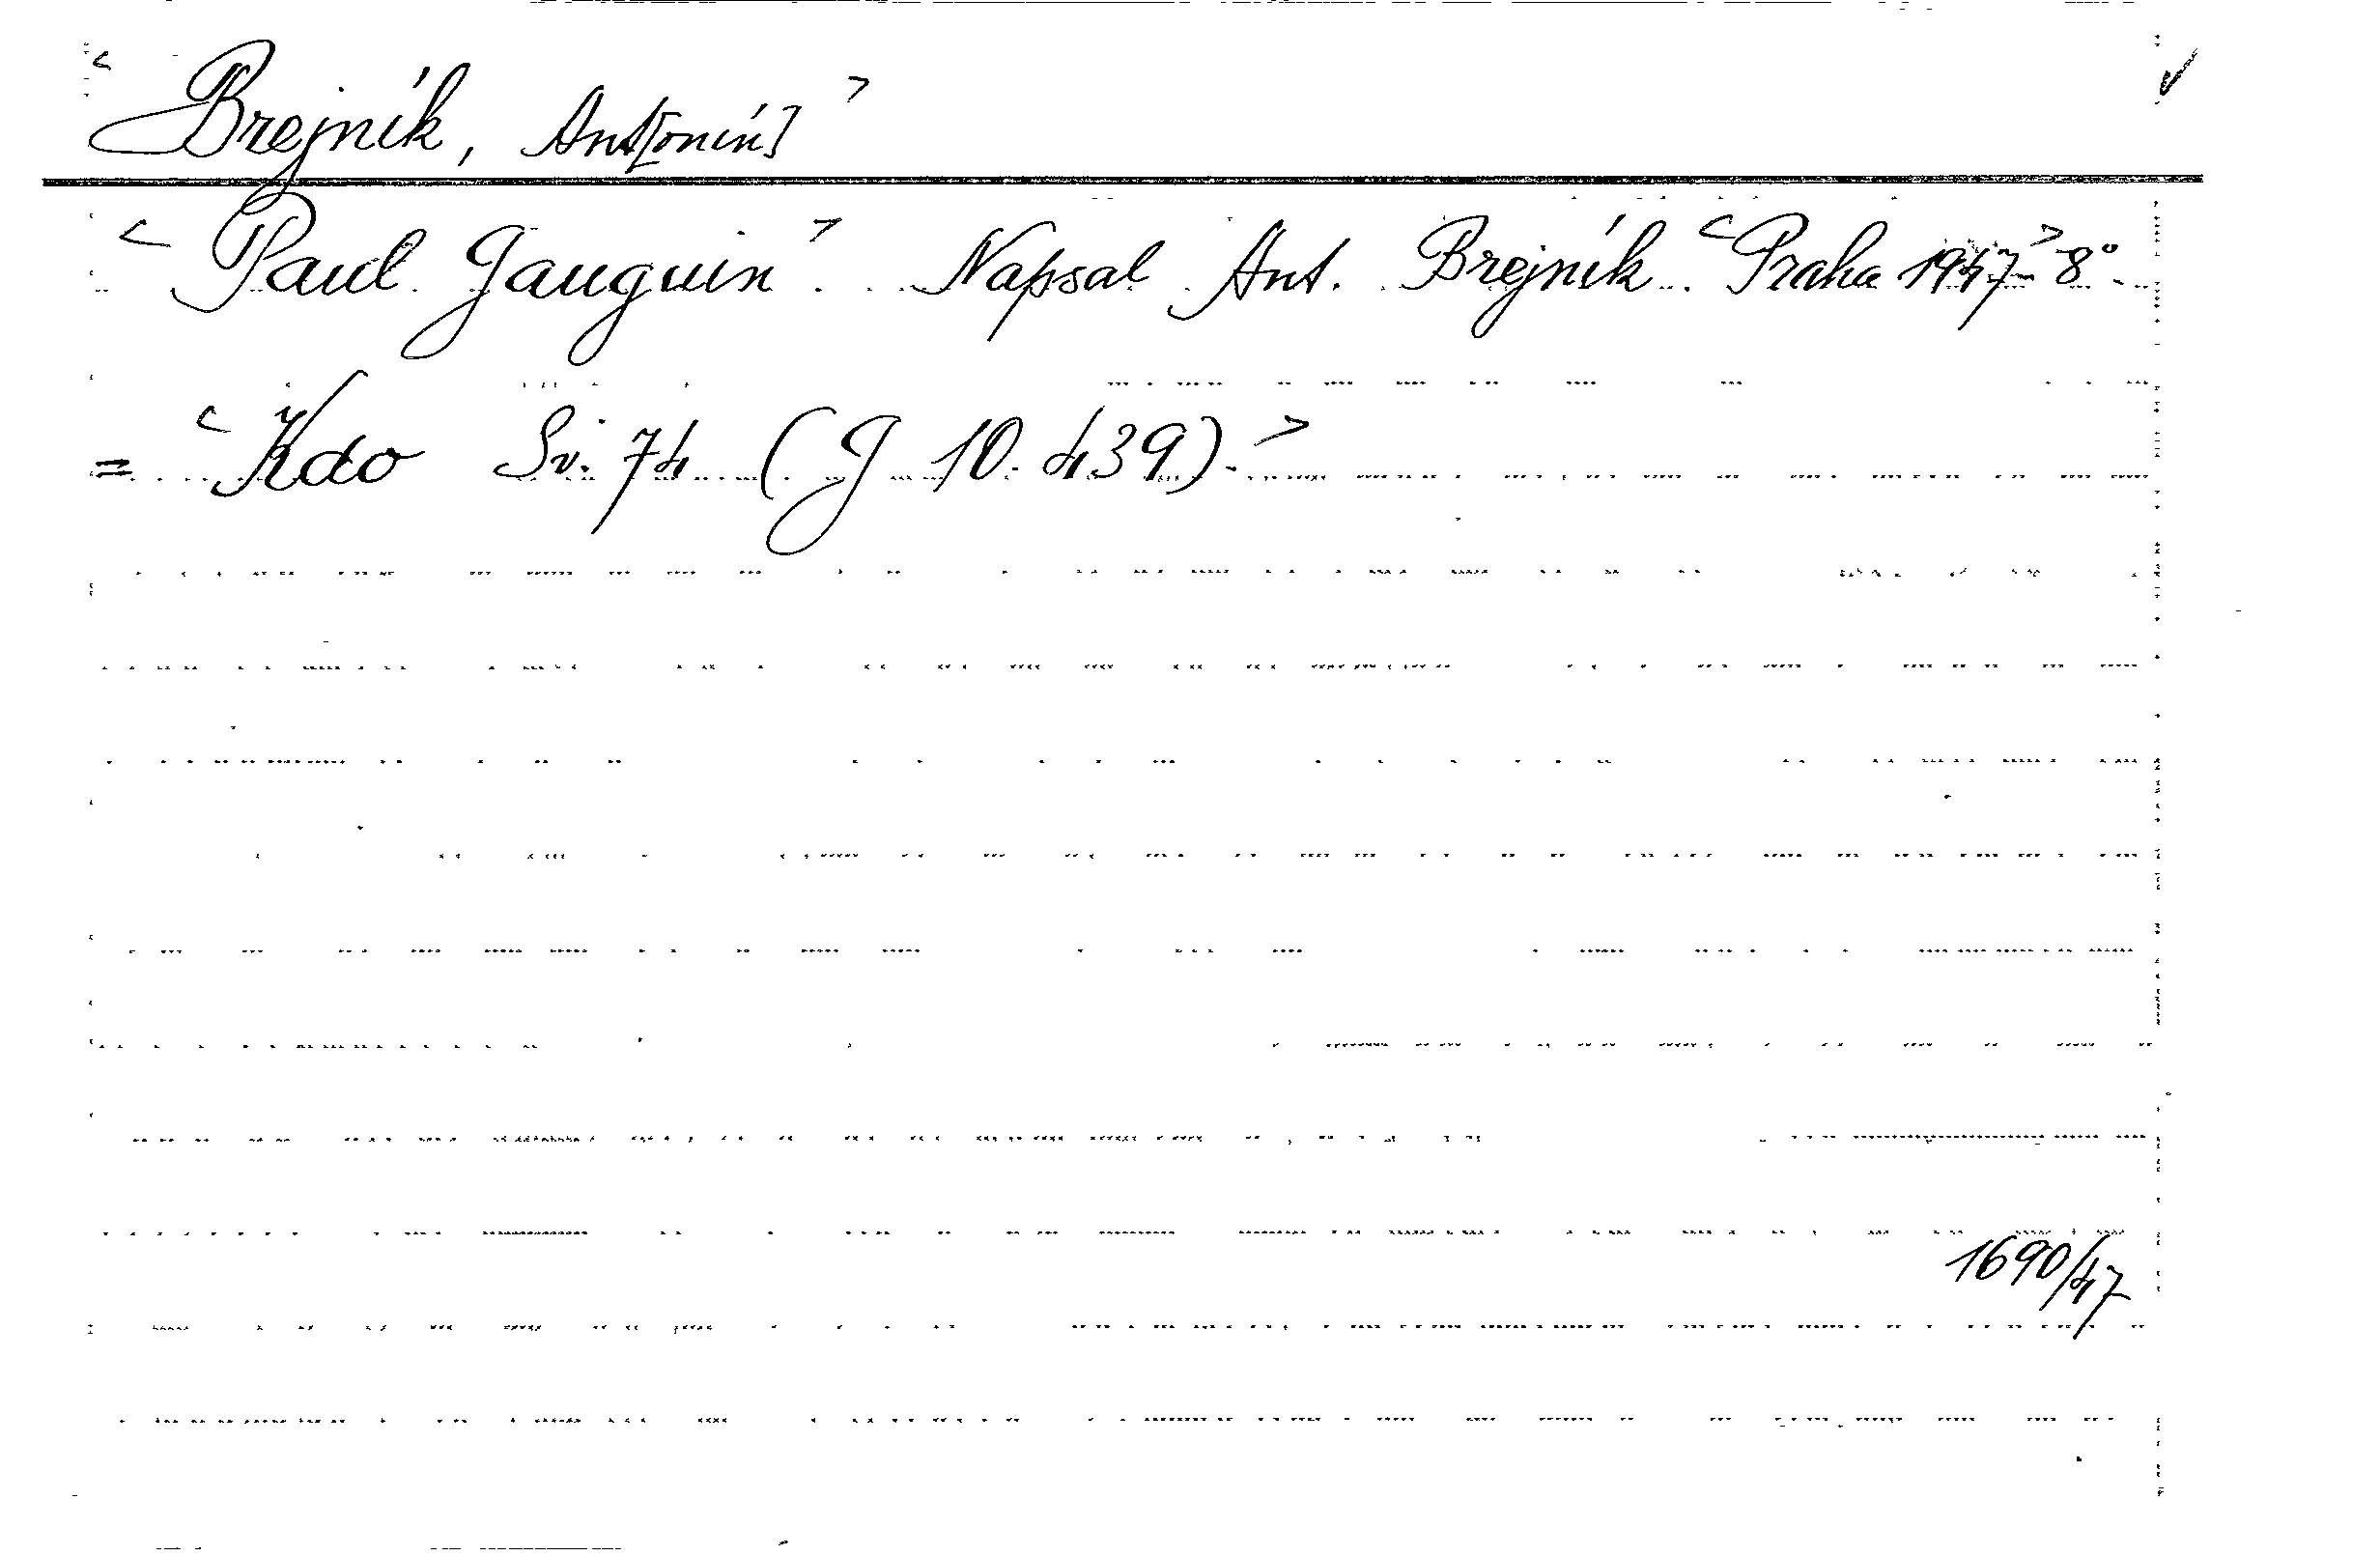 < Brejník, Ant[onín] >
< Paul Gauguin > . Napsal Ant. Brejník. < Praha 1947 > 8°.
= < Kdo Sv. 74 (G 10.439). >
1690/47